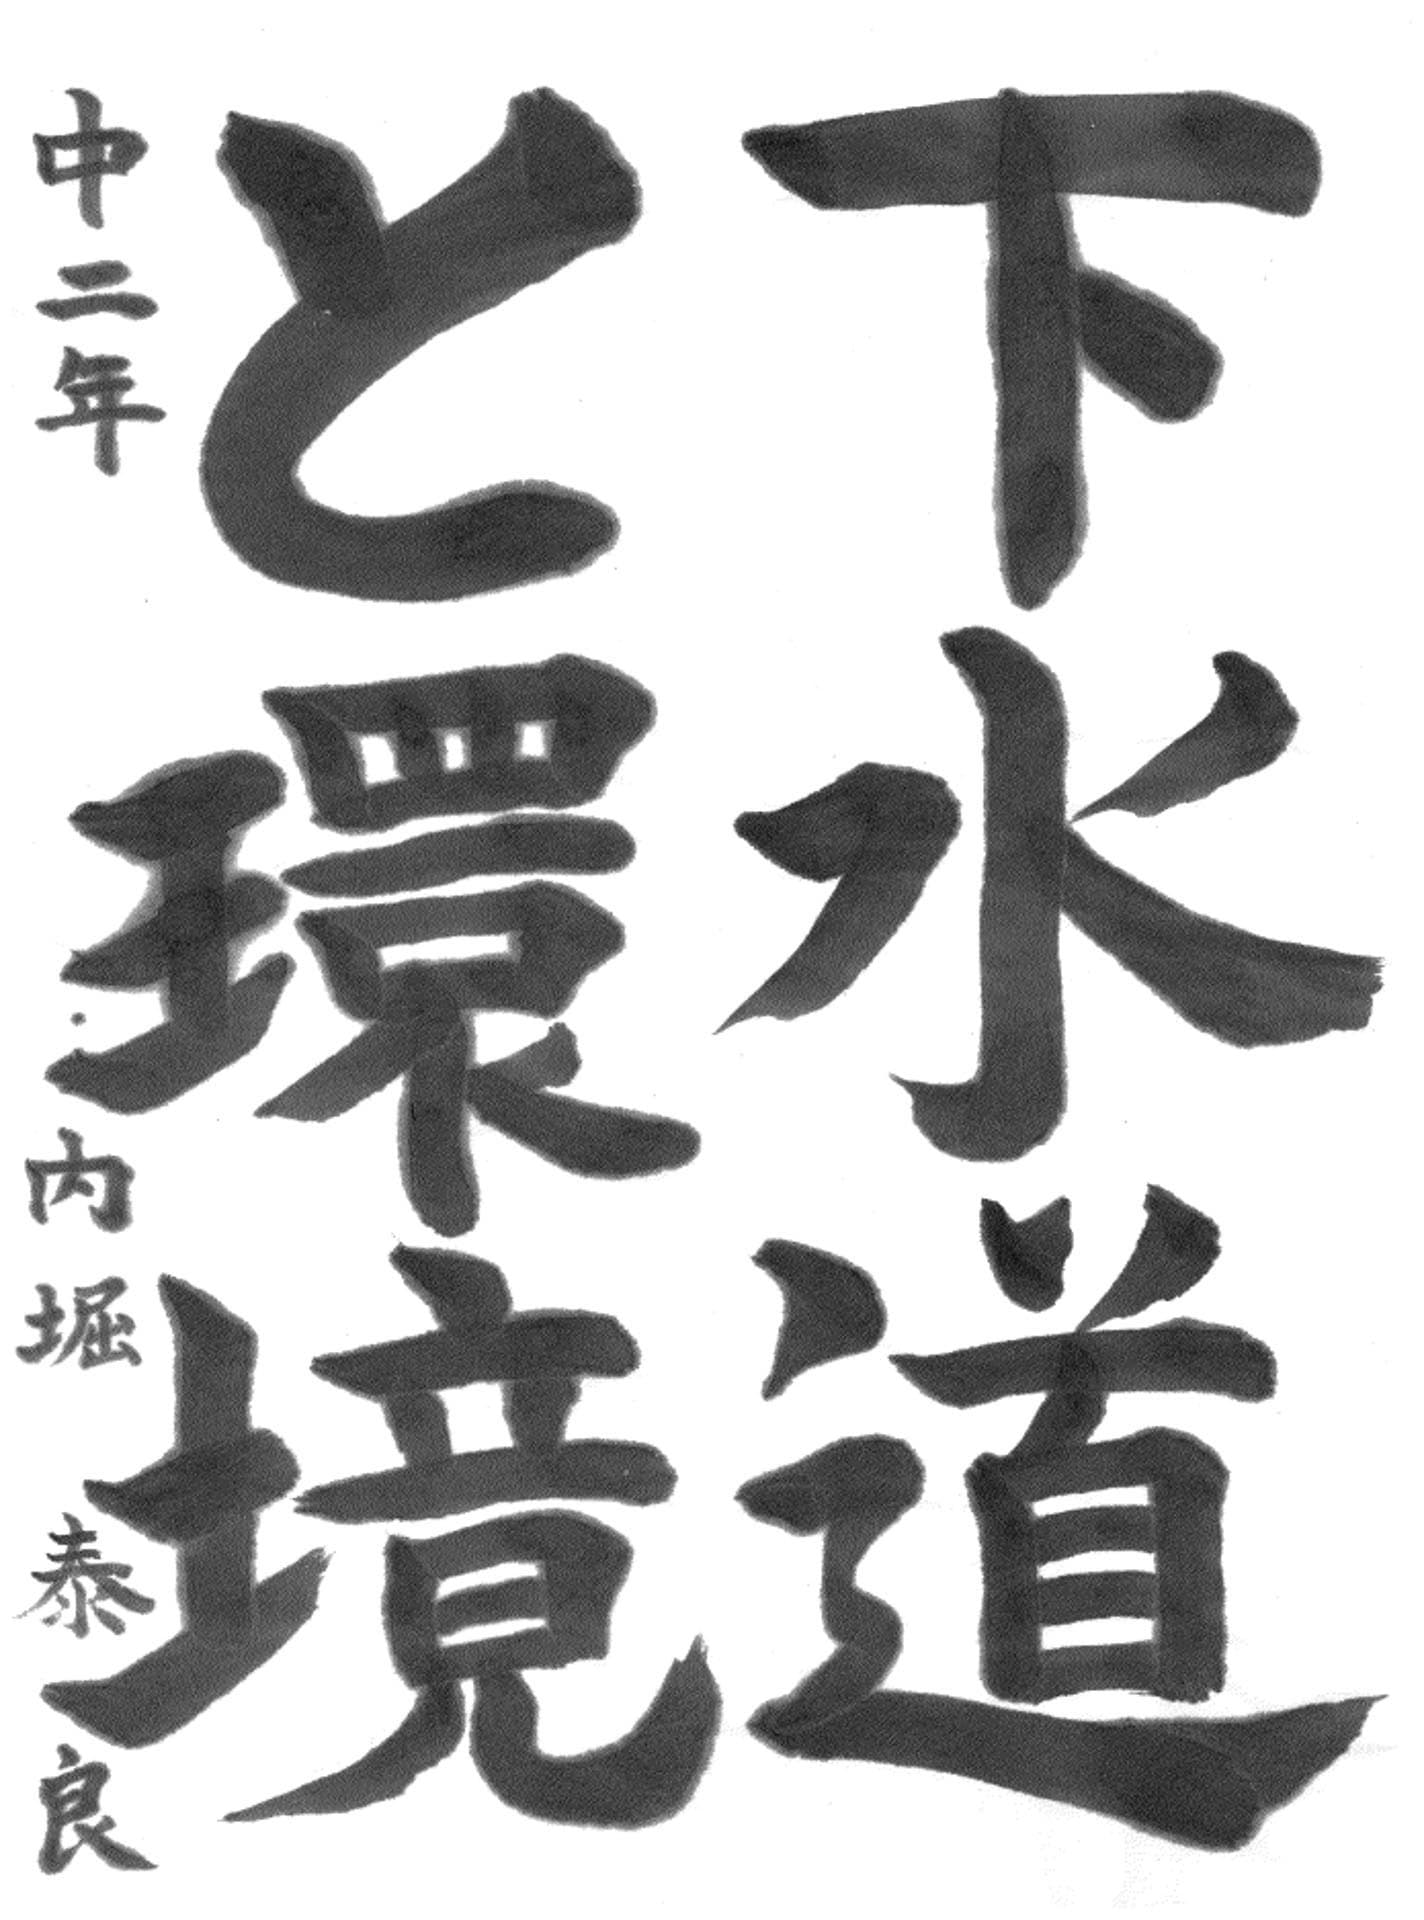 下水道
と環境
中二年 内堀泰良